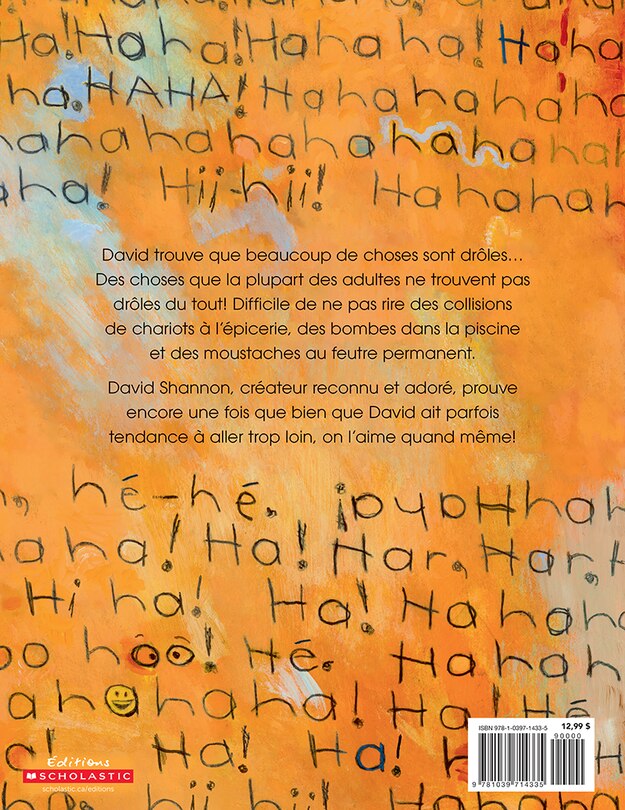 Ha!Haha!Hahaha! Haha
ha.HAHA! Hahahahaha
hahahahahahahahaha
aha! Hii-hii! Hahaha
David trouve que beaucoup de choses sont drôles...
Des choses que la plupart des adultes ne trouvent pas
drôles du tout! Difficile de ne pas rire des collisions
de chariots à l'épicerie, des bombes dans la piscine
et des moustaches au feutre permanent.
David Shannon, créateur reconnu et adoré, prouve
encore une fois que bien que David ait parfois
tendance à aller trop loin, on l'aime quand même!
hé-hé. Haha! hah
aha! Ha! Har, Har,
Hi ha! Ha! Hahah
oo hoo! Hé. Hahah
ahahahaha! Ha! Hé
Ha! Ha!
ISBN 978-1-0397-1433-5 12,99 $
90000
9 781039 714335
Éditions
SCHOLASTIC
scholastic.ca/editions